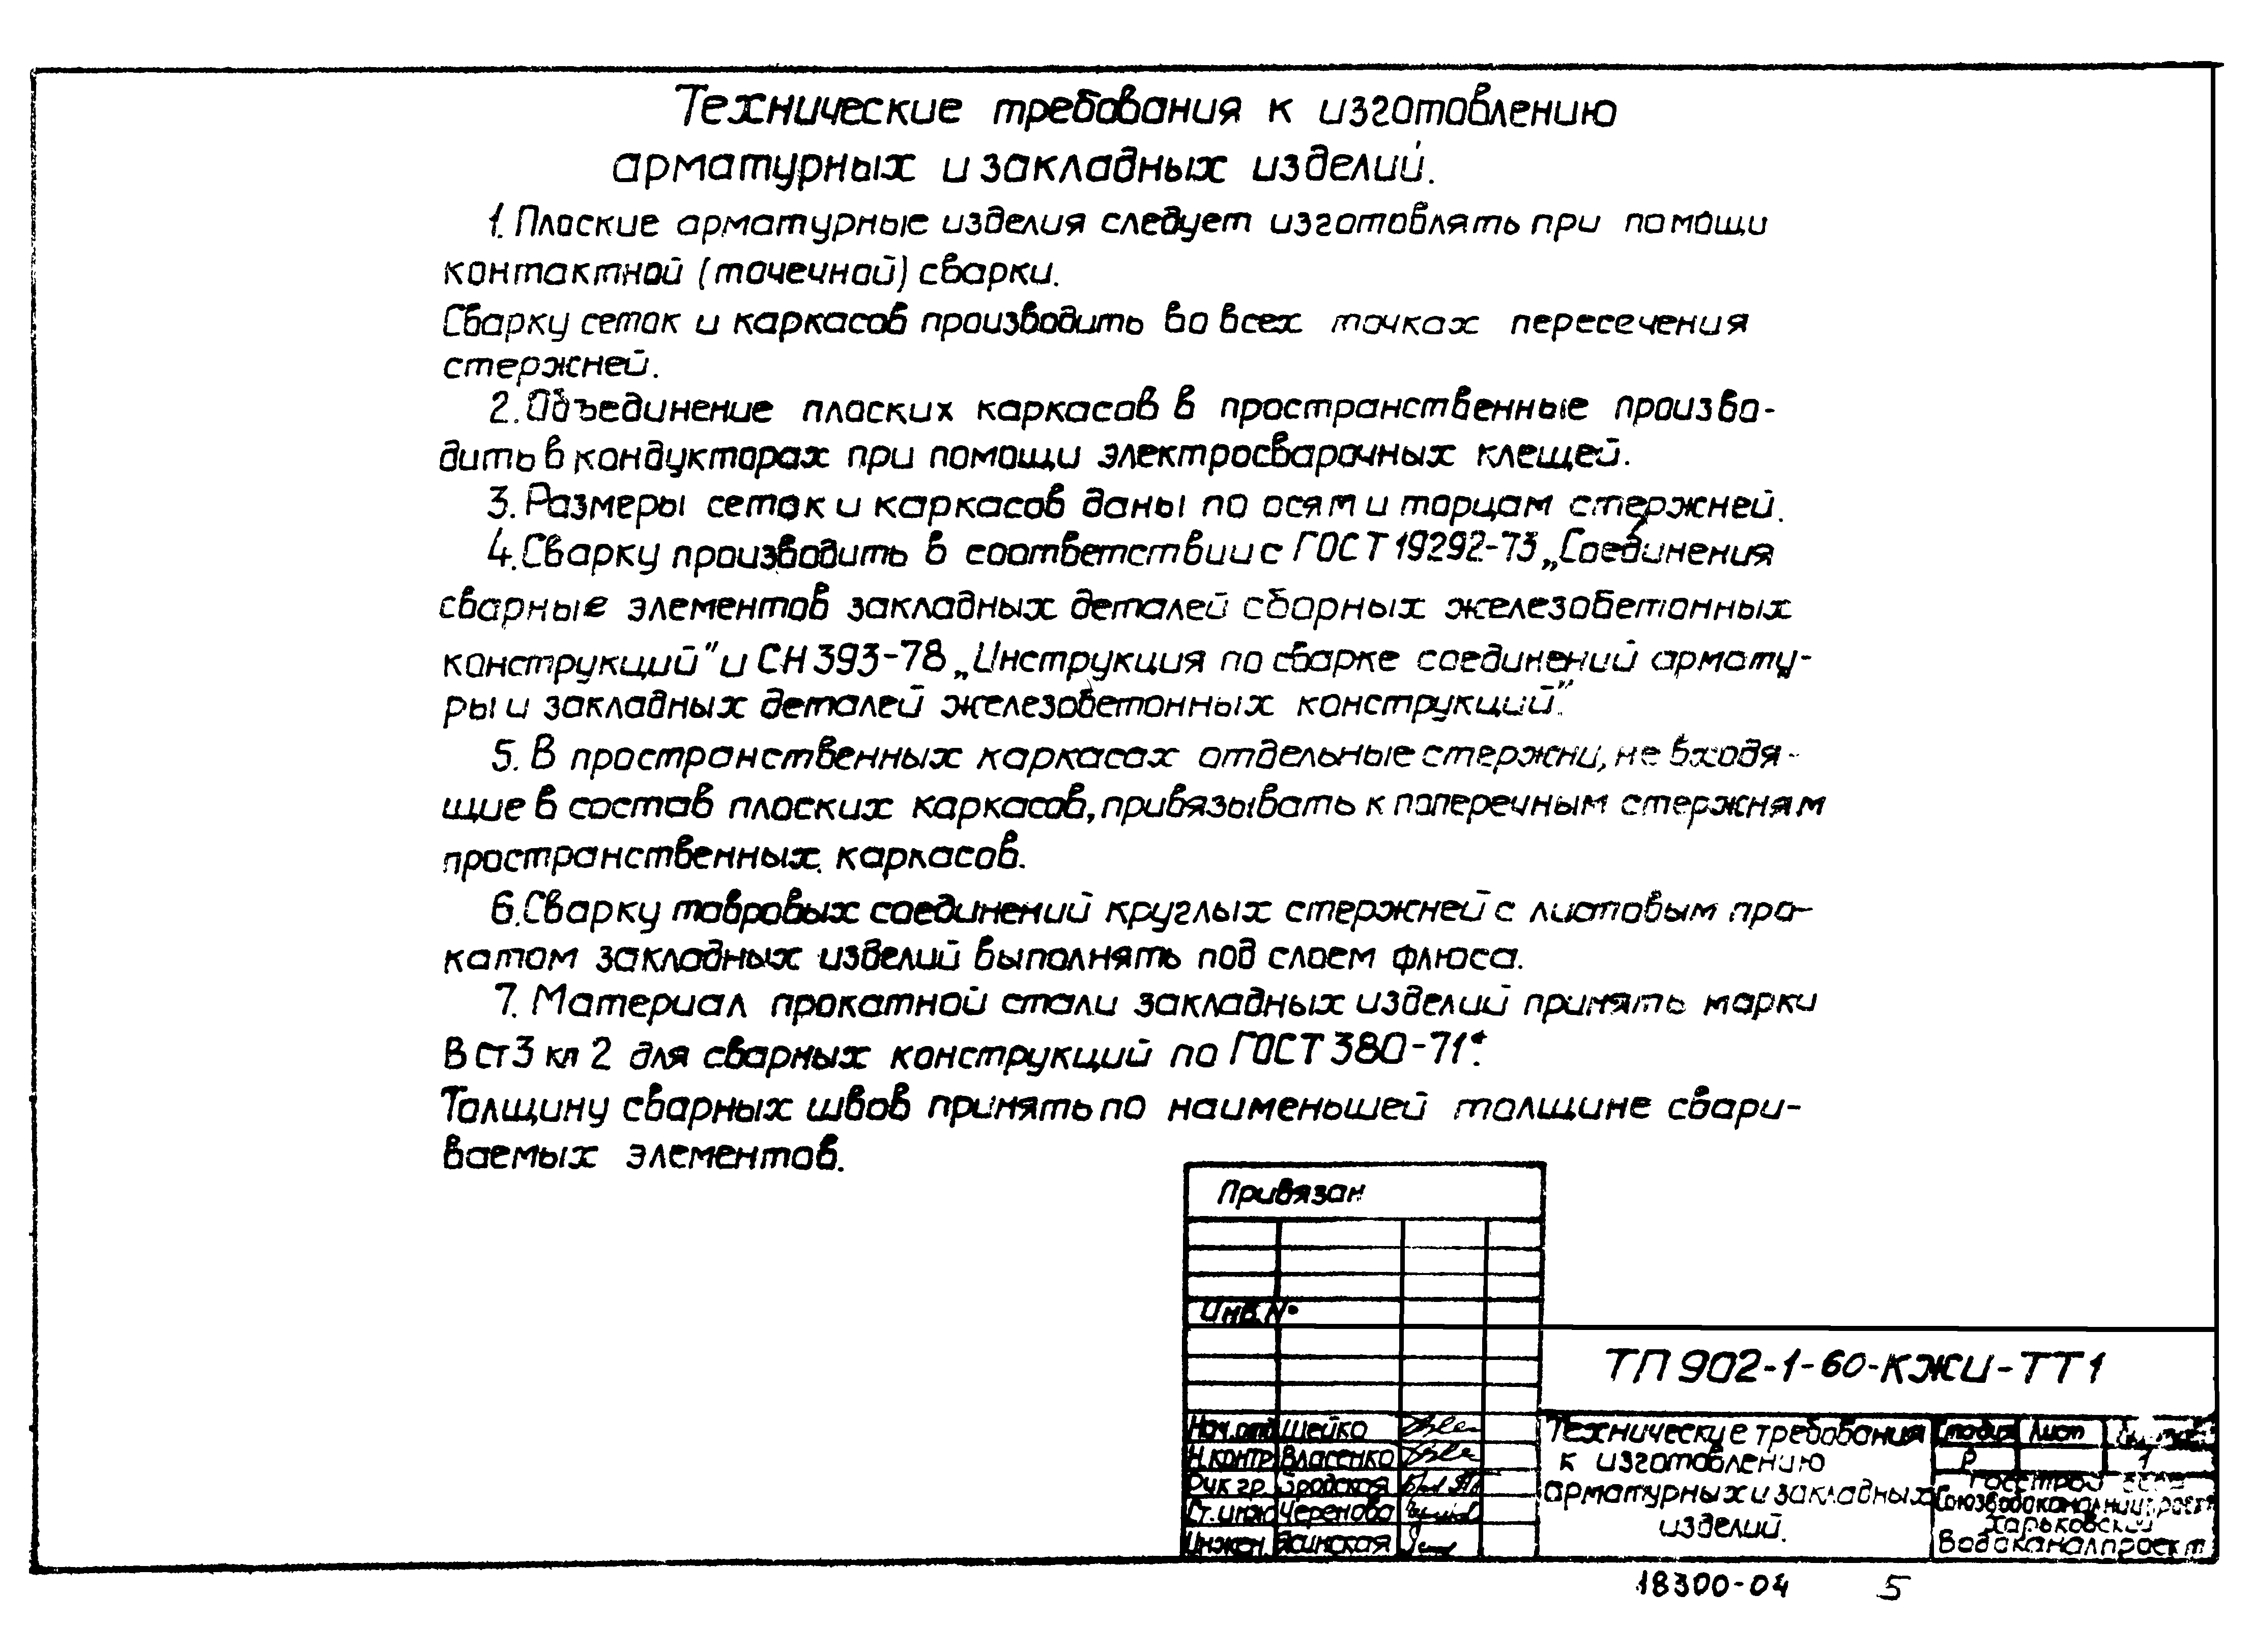 Технические требования к изготовлению
арматурных и закладных изделий.
1. Плоские арматурные изделия следует изготовлять при помощи
контактной (точечной) сварки.
Сварку сеток и каркасов производить во всех точках пересечения
стержней.
2. Объединение плоских каркасов в пространственные произво-
дить в кондукторах при помощи электросварочных клещей.
3. Размеры сеток и каркасов даны по осям и торцам стержней.
4. Сварку производить в соответствии с ГОСТ 19292-73 „Соединения
сварные элементов закладных деталей сборных железобетонных
конструкций" и СН 393-78 „Инструкция по сварке соединений армату-
ры и закладных деталей железобетонных конструкций".
5. В пространственных каркасах отдельные стержни, не входя-
щие в состав плоских каркасов, привязывать к поперечным стержням
пространственных каркасов.
6. Сварку тавровых соединений круглых стержней с листовым про-
катом закладных изделий выполнять под слоем флюса.
7. Материал прокатной стали закладных изделий принять марки
В Ст 3 кп 2 для сварных конструкций по ГОСТ 380-71*.
Толщину сварных швов принять по наименьшей толщине свари-
ваемых элементов.
Привязан
Инв.№
ТП 902-1-60-КЖИ-ТТ1
Нач.отд Шейко
Н.контр Власенко
Рук.гр. Бродская
Ст.инж Черенова
Инжен. Ясинская
Технические требования
к изготовлению
арматурных и закладных
изделий.
Стадия Лист
Р 1
Госстрой СССР
Союзводоканалниипроект
Харьковский
Водоканалпроект
18300-04 5